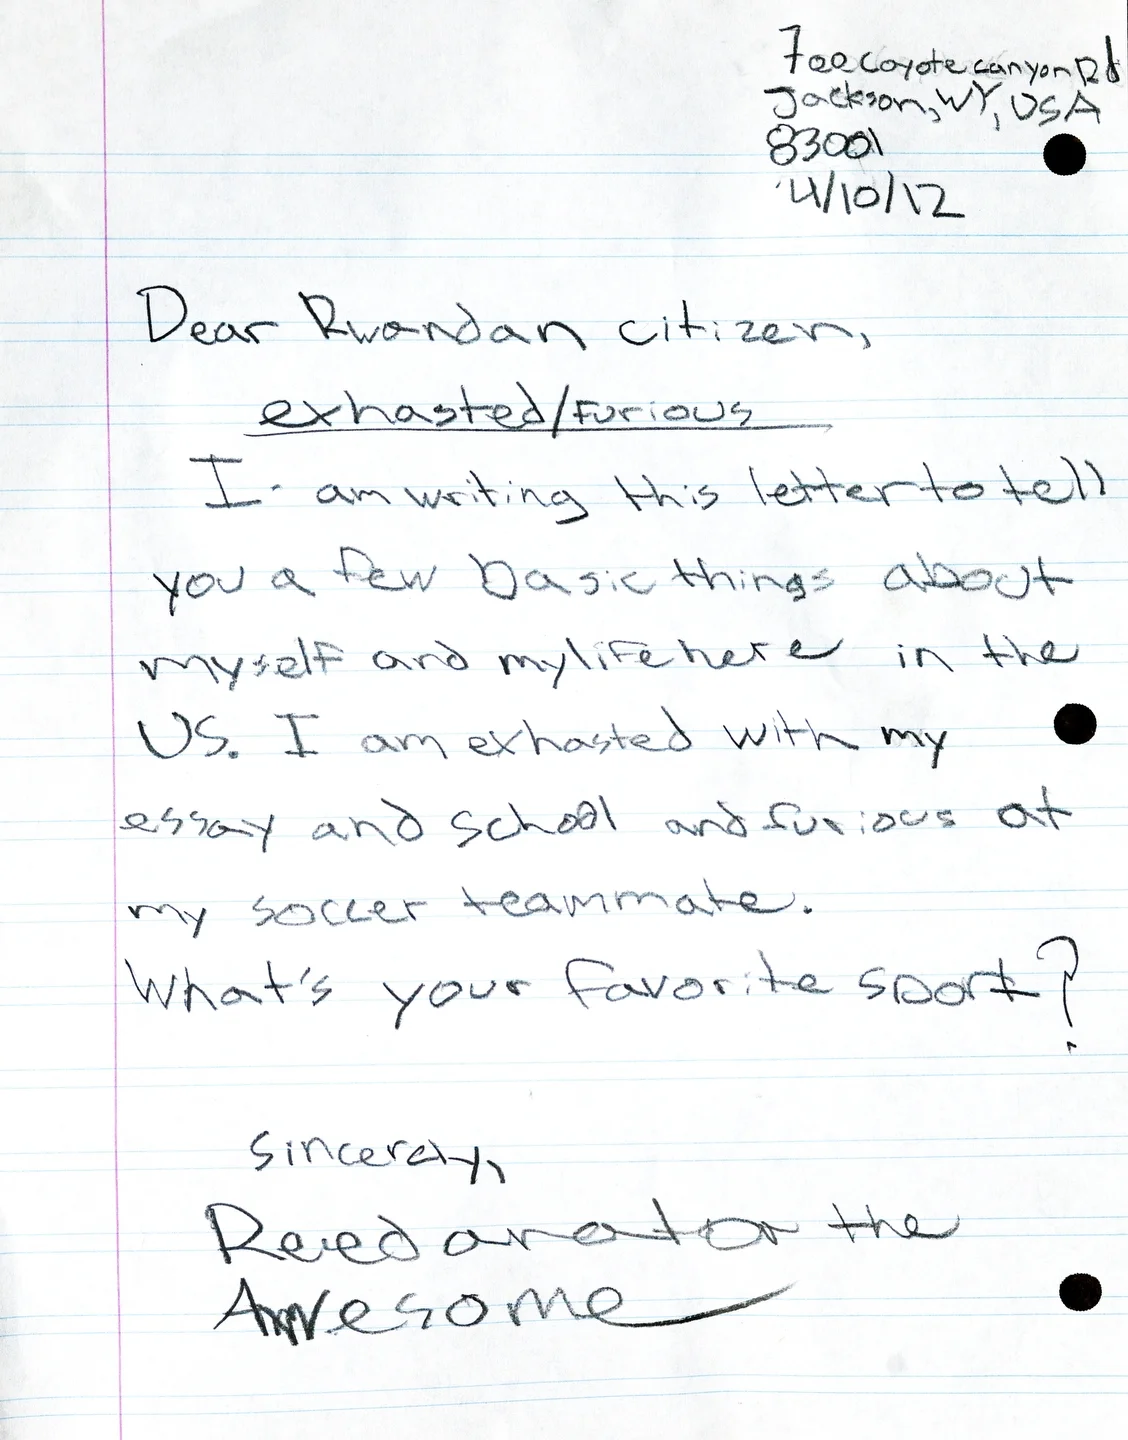 700 coyote canyon Rd
Jackson, WY, USA
83001
4/10/12
Dear Rwandan citizen,
exhasted/furious
I am writing this letter to tell
you a few basic things about
myself and my life here in the
US. I am exhasted with my
essay and school and furious at
my soccer teammate.
What's your favorite sport?
sincerely,
Reedanator the
Awesome